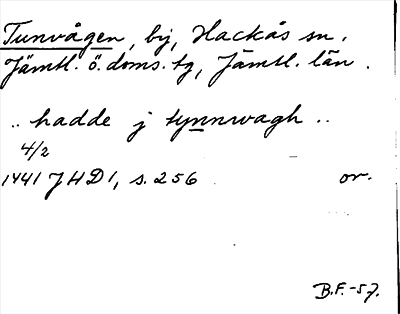 Tunvågen, by, Hackås sn.
Jämtl. ö. doms. tg, Jämtl. län.
.. hadde j tynnwagh ..
4/2
1441 JHD 1, s. 256 or.
B.F.-57.